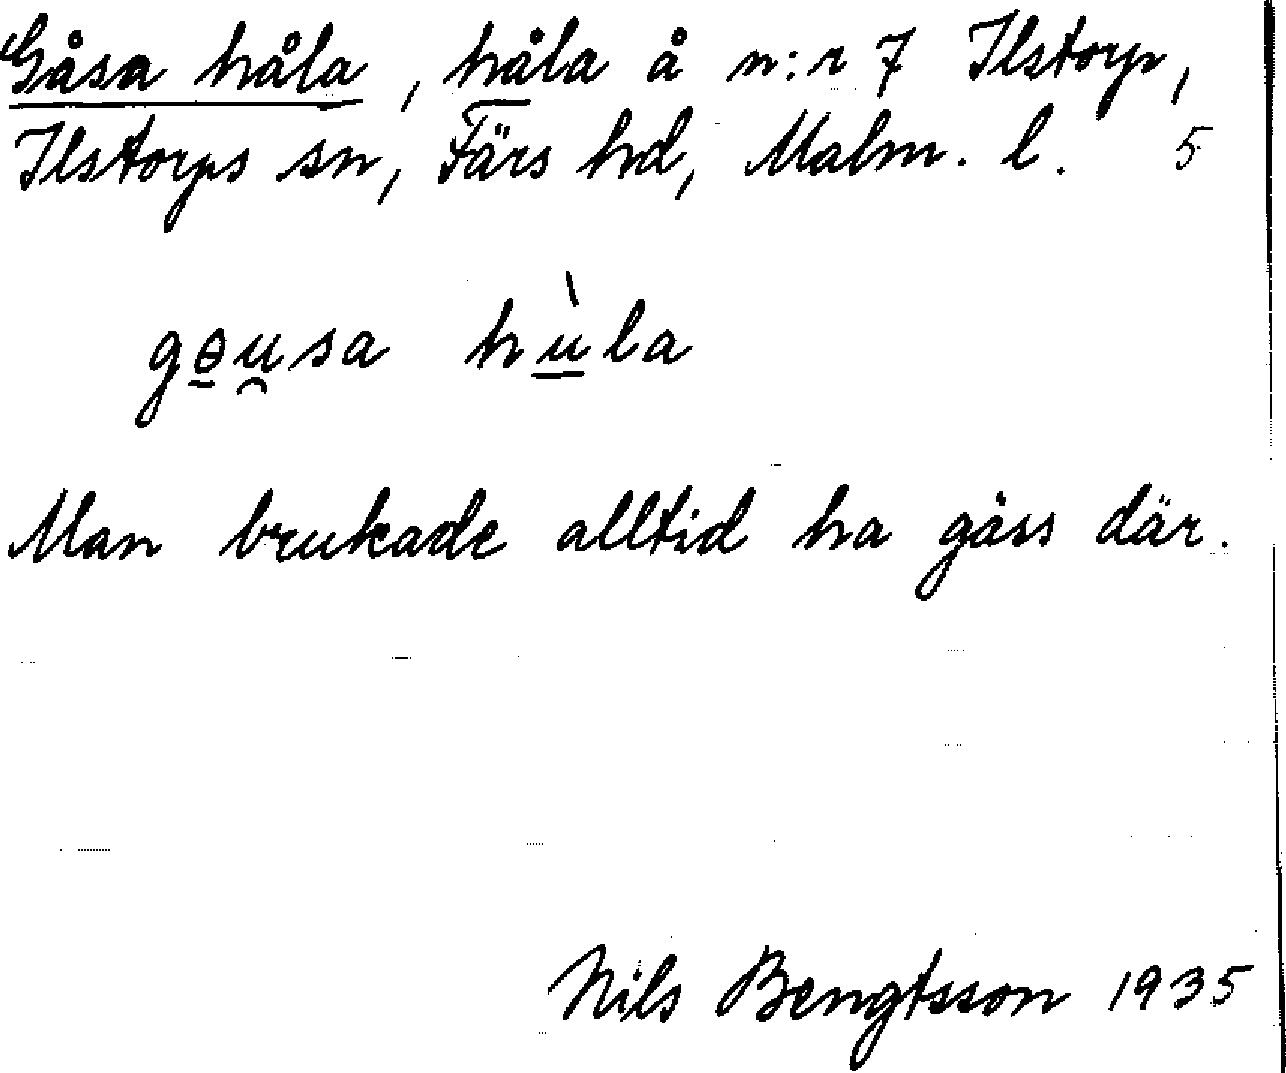 Gåsa håla, håla å n:r 7 Ilstorp,
Ilstorps sn, Färs hd, Malm. l. 5
gɵ̱u̯sa hù̱la
Man brukade alltid ha gäss där.
Nils Bengtsson 1935